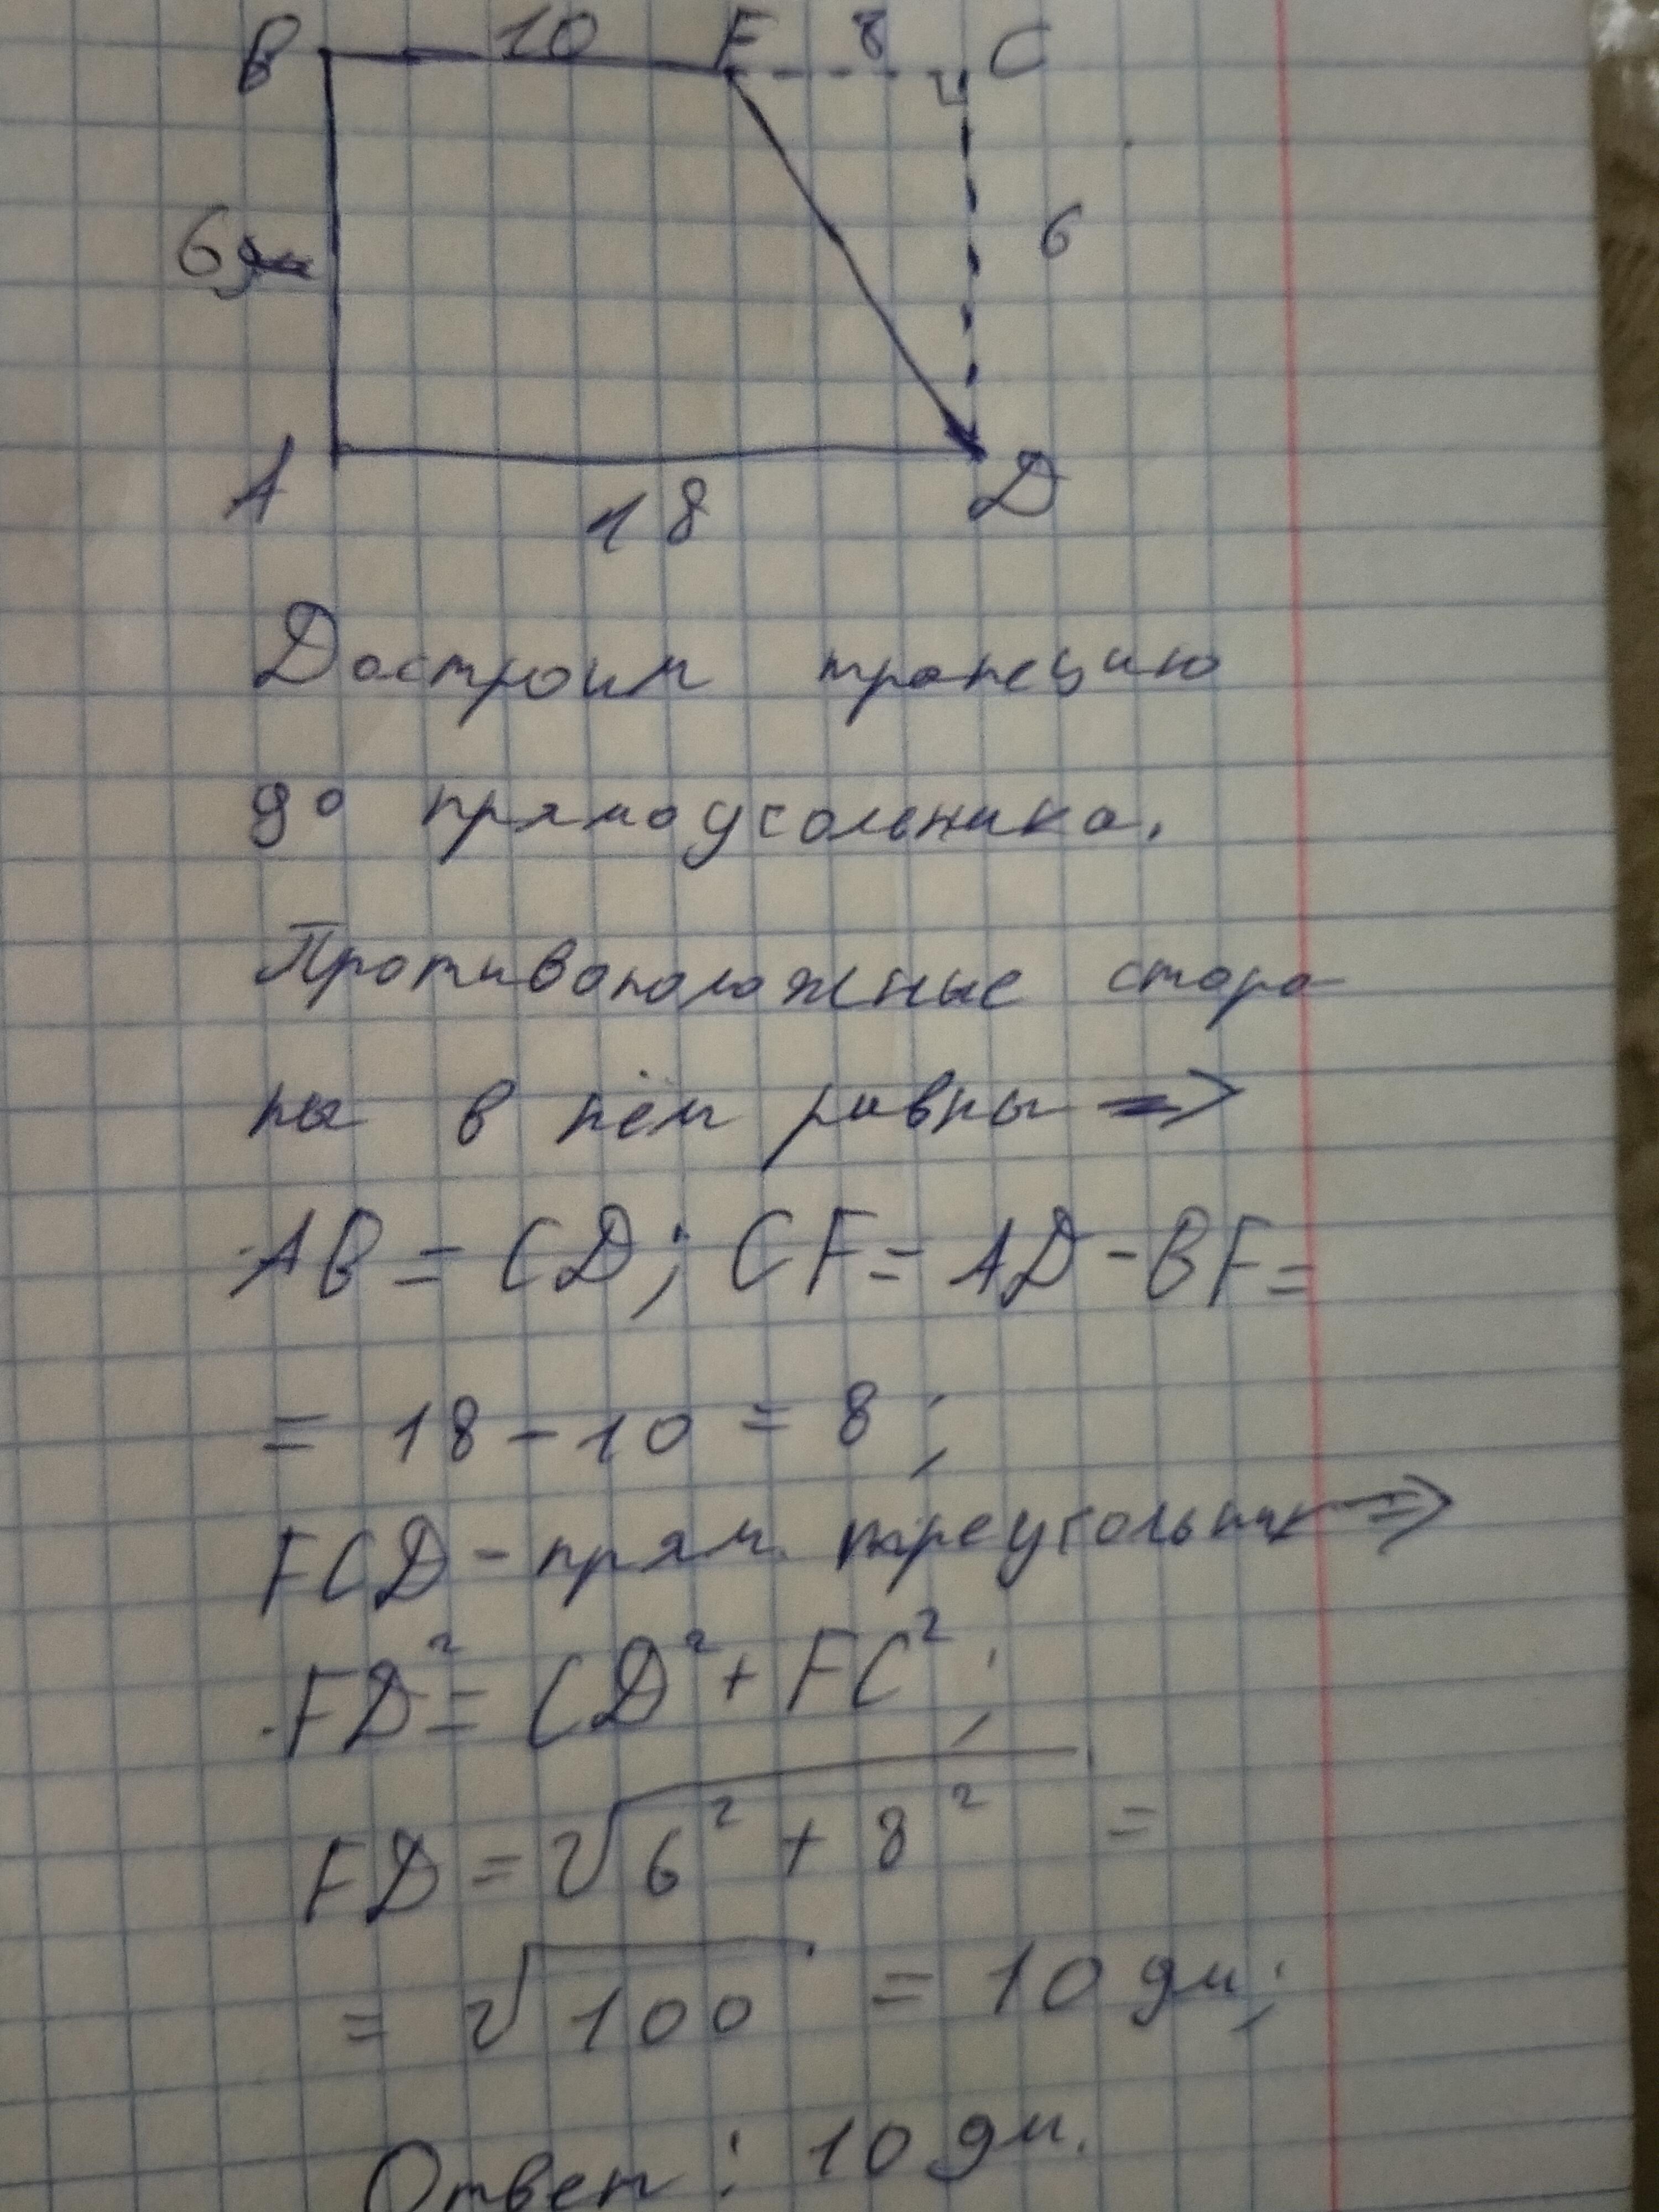 B 10 F 8 C
6 дм 6
A 18 D
Достроим трапецию
до прямоугольника.
Противоположные сторо-
ны в нём равны =>
AB = CD; CF = AD - BF =
= 18 - 10 = 8;
FCD - прям. треугольник =>
FD² = CD² + FC²;
FD = √6² + 8² =
= √100 = 10 дм;
Ответ: 10 дм.